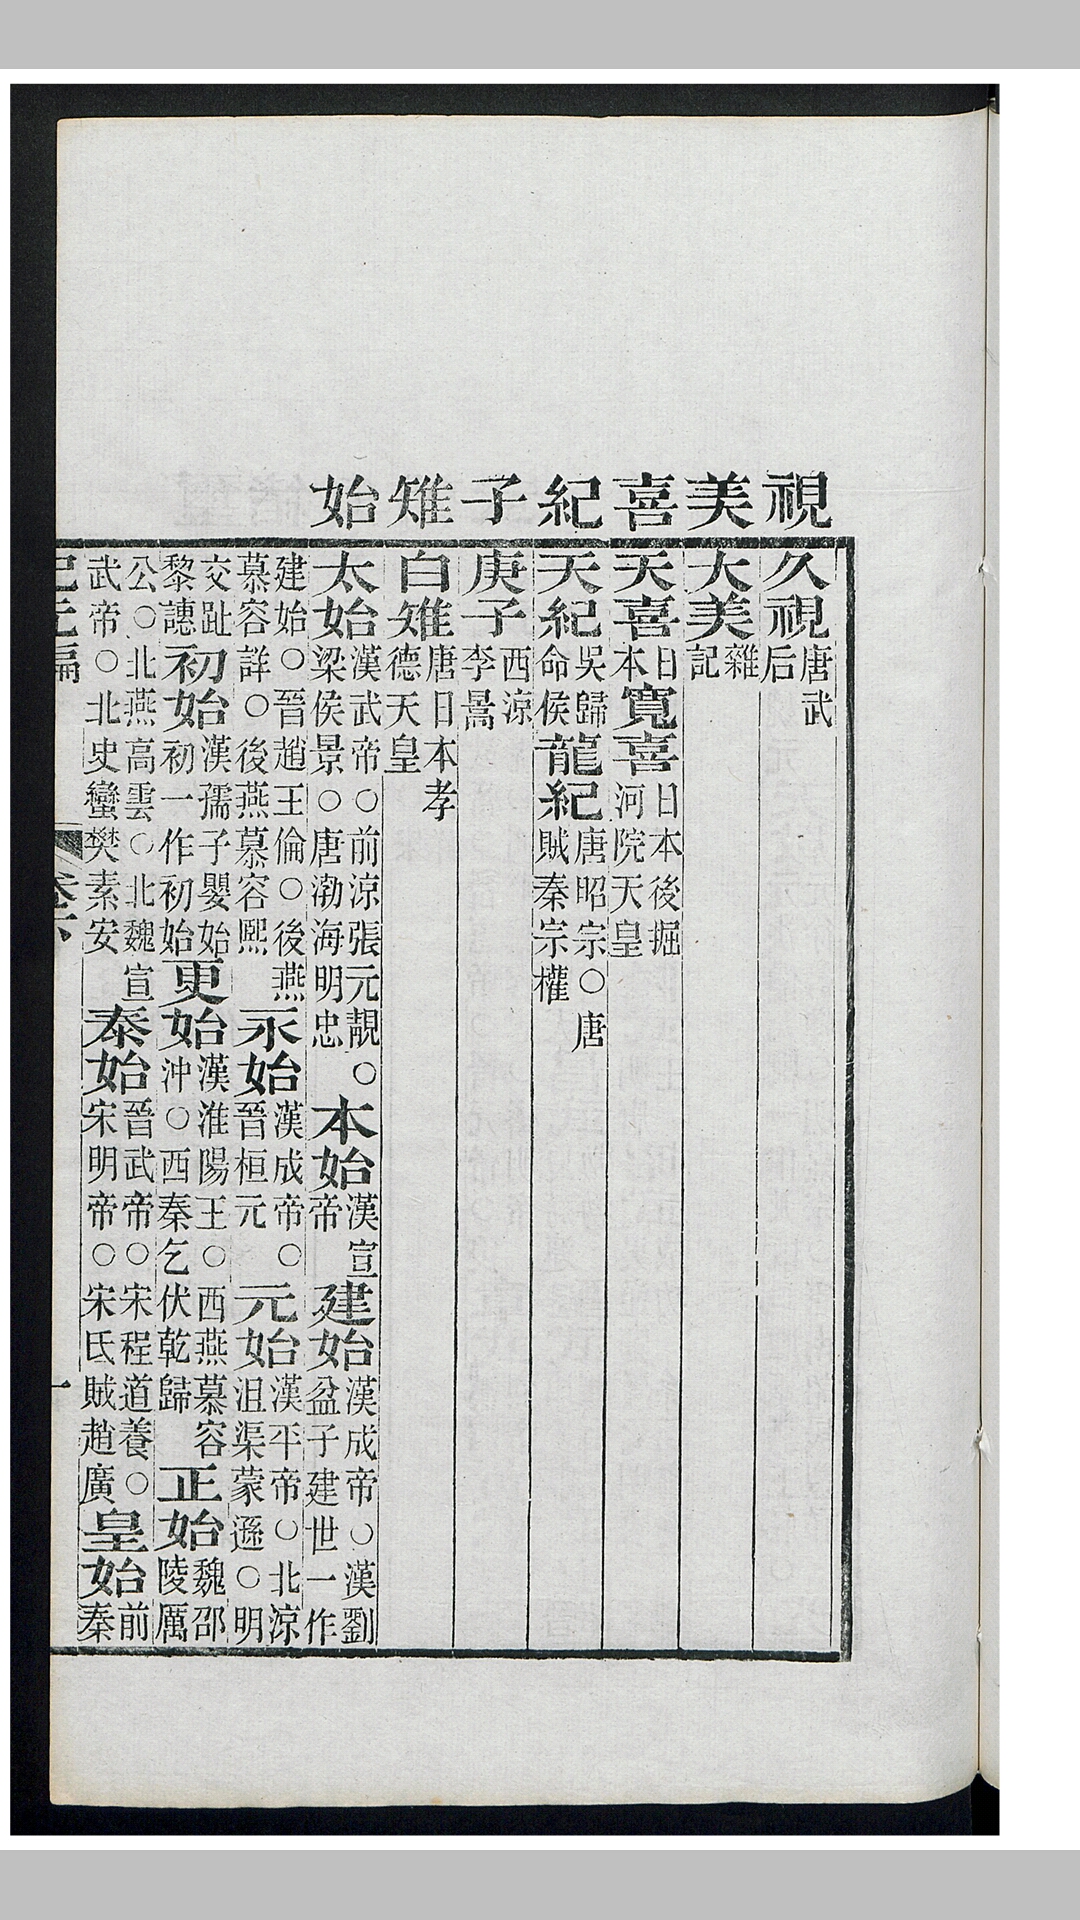 視
美
喜
紀
子
雉
始
久視唐武后
大美雜記
天喜日本寬喜日本後掘河院天皇
天紀吳歸命侯龍紀唐昭宗○唐賊秦宗權
庚子西涼李暠
白雉唐日本孝德天皇
太始漢武帝○前涼張元靚○梁侯景○唐渤海明忠本始漢宣帝建始漢成帝○漢劉盆子建世一作
建始○晉趙王倫○後燕慕容詳○後燕慕容熙永始漢成帝○晉桓元元始漢平帝○北涼沮渠蒙遜○明
交趾黎譓初始漢孺子嬰始初一作初始更始漢淮陽王○西燕慕容沖○西秦乞伏乾歸正始魏邵陵厲
公○北燕高雲○北魏宣武帝○北史蠻樊素安泰始晉武帝○宋程道養○宋明帝○宋氐賊趙廣皇始前秦
紀元編 卷六